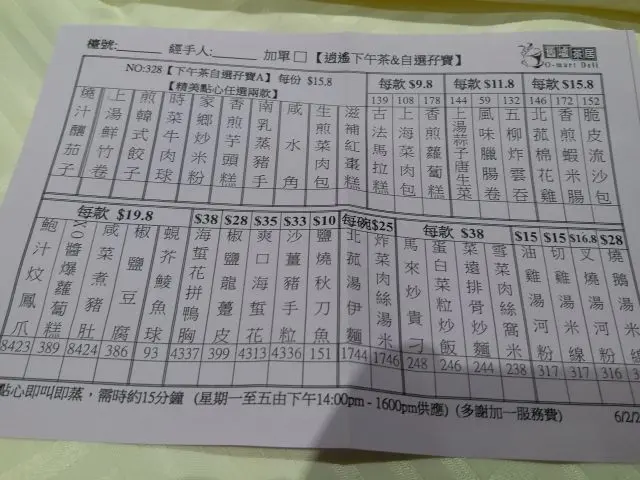 檯號:______ 經手人:______ 加單□【逍遙下午茶&自選孖寶】
O-mart Deli
NO:328【下午茶自選孖寶A】每份 $15.8
【精美點心任選兩款】
燒汁釀茄子
上湯鮮竹卷
煎韓式餃子
時菜牛肉球
家鄉炒米粉
香煎芋頭糕
南乳蒸豬手
咸水角
生煎菜肉包
滋補紅棗糕
每款 $9.8
139 古法馬拉糕
108 上海菜肉包
178 香煎蘿蔔糕
每款 $11.8
144 上湯蒜子唐生菜
59 風味臘腸卷
132 五柳炸雲吞
每款 $15.8
146 北菰棉花雞
172 香煎蝦米腸
152 脆皮流沙包
每款 $19.8
鮑汁炆鳳爪 8423
XO醬爆蘿蔔糕 389
咸菜煮豬肚 8424
椒鹽豆腐 386
蜆芥鯪魚球 93
$38 海蜇花拼鴨胸 4337
$28 椒鹽龍躉皮 399
$35 爽口海蜇花 4313
$33 沙薑豬手粒 4336
$10 鹽燒秋刀魚 151
每碗$25
北菰湯伊麵 1744
炸菜肉絲湯米 1746
每款 $38
馬來炒貴刁 248
蛋白菜粒炒飯 246
菜遠排骨炒麵 244
雪菜肉絲窩米 238
$15 油雞湯河粉 317
$15 切雞湯米線 317
$16.8 叉燒湯河粉 316
$28 燒鵝湯米線
點心即叫即蒸，需時約15分鐘 (星期一至五由下午14:00pm - 1600pm供應) (多謝加一服務費)
6/2/2